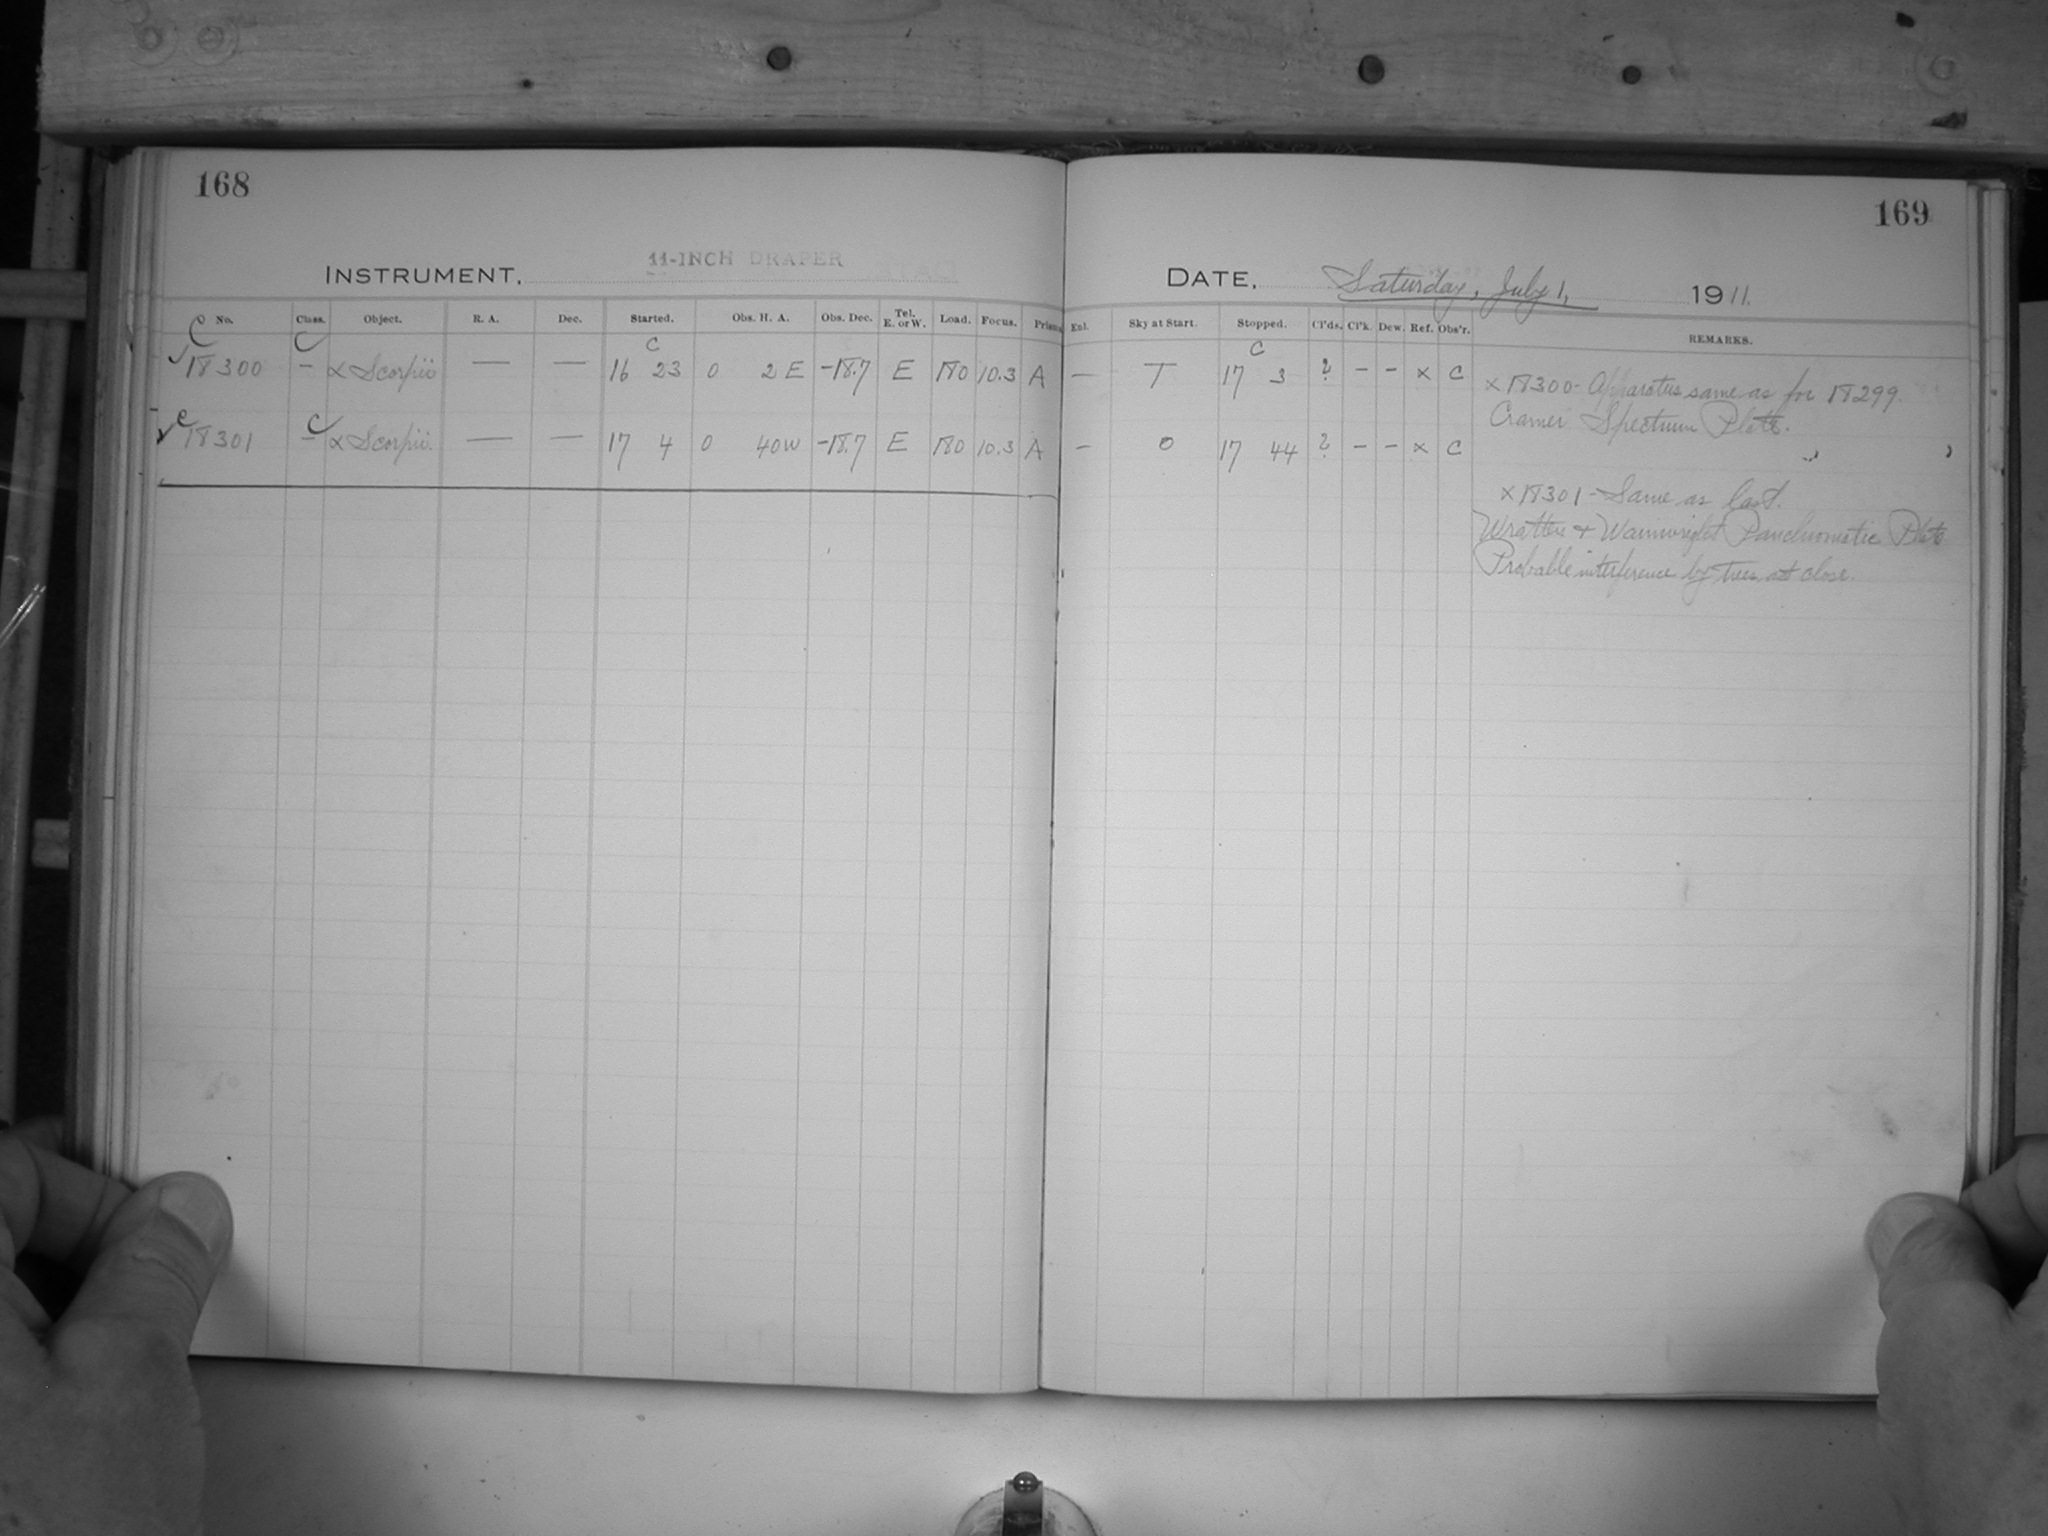 168
169
11-INCH DRAPER
INSTRUMENT,
DATE, Saturday, July 1, 1911.
No. Class. Object. R. A. Dec. Started. Obs. H. A. Obs. Dec. Tel. E. or W. Load. Focus. Prism. Enl. Sky at Start. Stopped. Cl'ds. Cl'k. Dew. Ref. Obs'r. REMARKS.
C C C C
√ 18300 — α Scorpii — — 16 23 0 2 E -18.7 E 180 10.3 A — T 17 3 ? — — × C
× 18300 - Apparatus same as for 18299.
Cramer Spectrum Plate.
√ C 18301 C — α Scorpii. — — 17 4 0 40 W -18.7 E 180 10.3 A — 0 17 44 ? — — × C
× 18301 - Same as last.
Wratten + Wainwright Panchromatic Plate
Probable interference by trees at close.